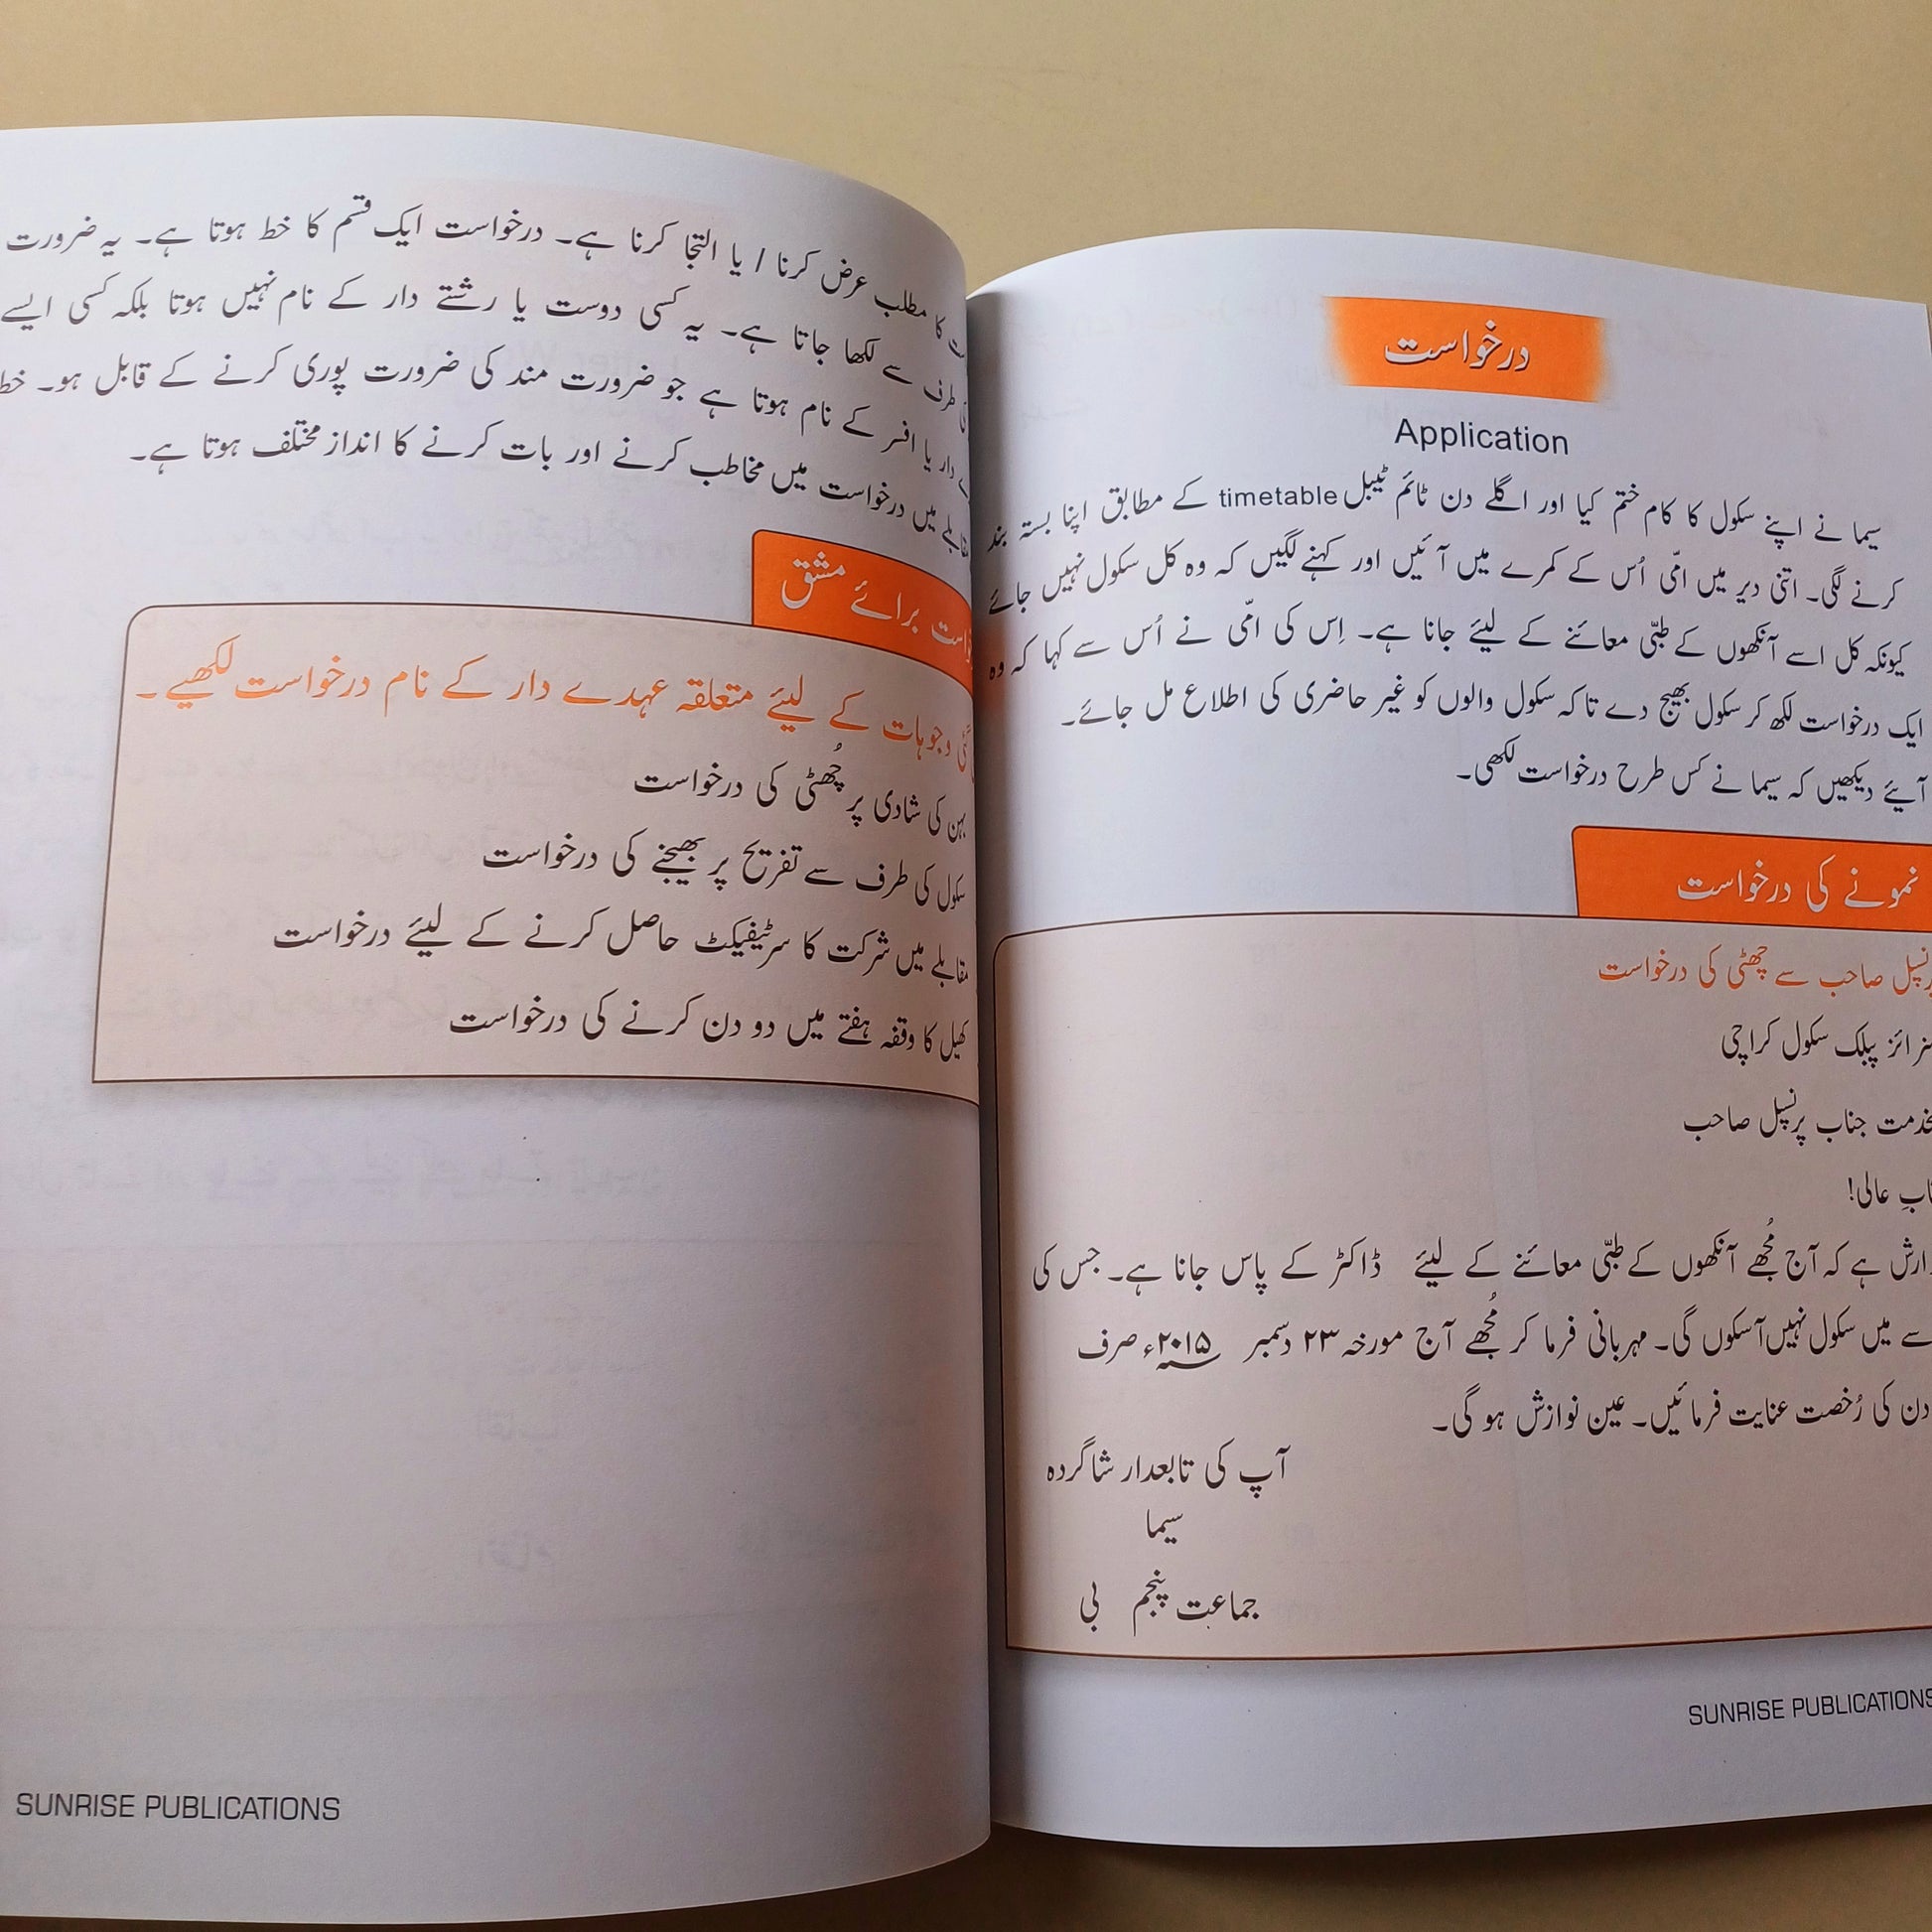 درخواست
Application
سیما نے اپنے سکول کا کام ختم کیا اور اگلے دن ٹائم ٹیبل timetable کے مطابق اپنا بستہ بند
کرنے لگی۔ اتنی دیر میں امّی اُس کے کمرے میں آئیں اور کہنے لگیں کہ وہ کل سکول نہیں جائے
کیونکہ کل اسے آنکھوں کے طبّی معائنے کے لیئے جانا ہے۔ اِس کی امّی نے اُس سے کہا کہ وہ
ایک درخواست لکھ کر سکول بھیج دے تاکہ سکول والوں کو غیر حاضری کی اطلاع مل جائے۔
آیئے دیکھیں کہ سیما نے کس طرح درخواست لکھی۔
نمونے کی درخواست
صاحب سے چھٹی کی درخواست
پبلک سکول کراچی
جناب پرنسپل صاحب
عالی!
ہے کہ آج مُجھے آنکھوں کے طبّی معائنے کے لیئے ڈاکٹر کے پاس جانا ہے۔ جس کی
سے میں سکول نہیں آسکوں گی۔ مہربانی فرما کر مُجھے آج مورخہ ۲۳ دسمبر ۲۰۱۵ء صرف
دن کی رُخصت عنایت فرمائیں۔ عین نوازش ہو گی۔
آپ کی تابعدار شاگردہ
سیما
جماعت پنجم بی
SUNRISE PUBLICATIONS
کا مطلب عرض کرنا / یا التجا کرنا ہے۔ درخواست ایک قسم کا خط ہوتا ہے۔ یہ ضرورت
طرف سے لکھا جاتا ہے۔ یہ کسی دوست یا رشتے دار کے نام نہیں ہوتا بلکہ کسی ایسے
دار یا افسر کے نام ہوتا ہے جو ضرورت مند کی ضرورت پوری کرنے کے قابل ہو۔ خط
میں درخواست میں مخاطب کرنے اور بات کرنے کا انداز مختلف ہوتا ہے۔
برائے مشق
وجوہات کے لیئے متعلقہ عہدے دار کے نام درخواست لکھیے۔
بہن کی شادی پر چُھٹی کی درخواست
سکول کی طرف سے تفریح پر بھیجنے کی درخواست
مقابلے میں شرکت کا سرٹیفیکٹ حاصل کرنے کے لیئے درخواست
کھیل کا وقفہ ہفتے میں دو دن کرنے کی درخواست
SUNRISE PUBLICATIONS